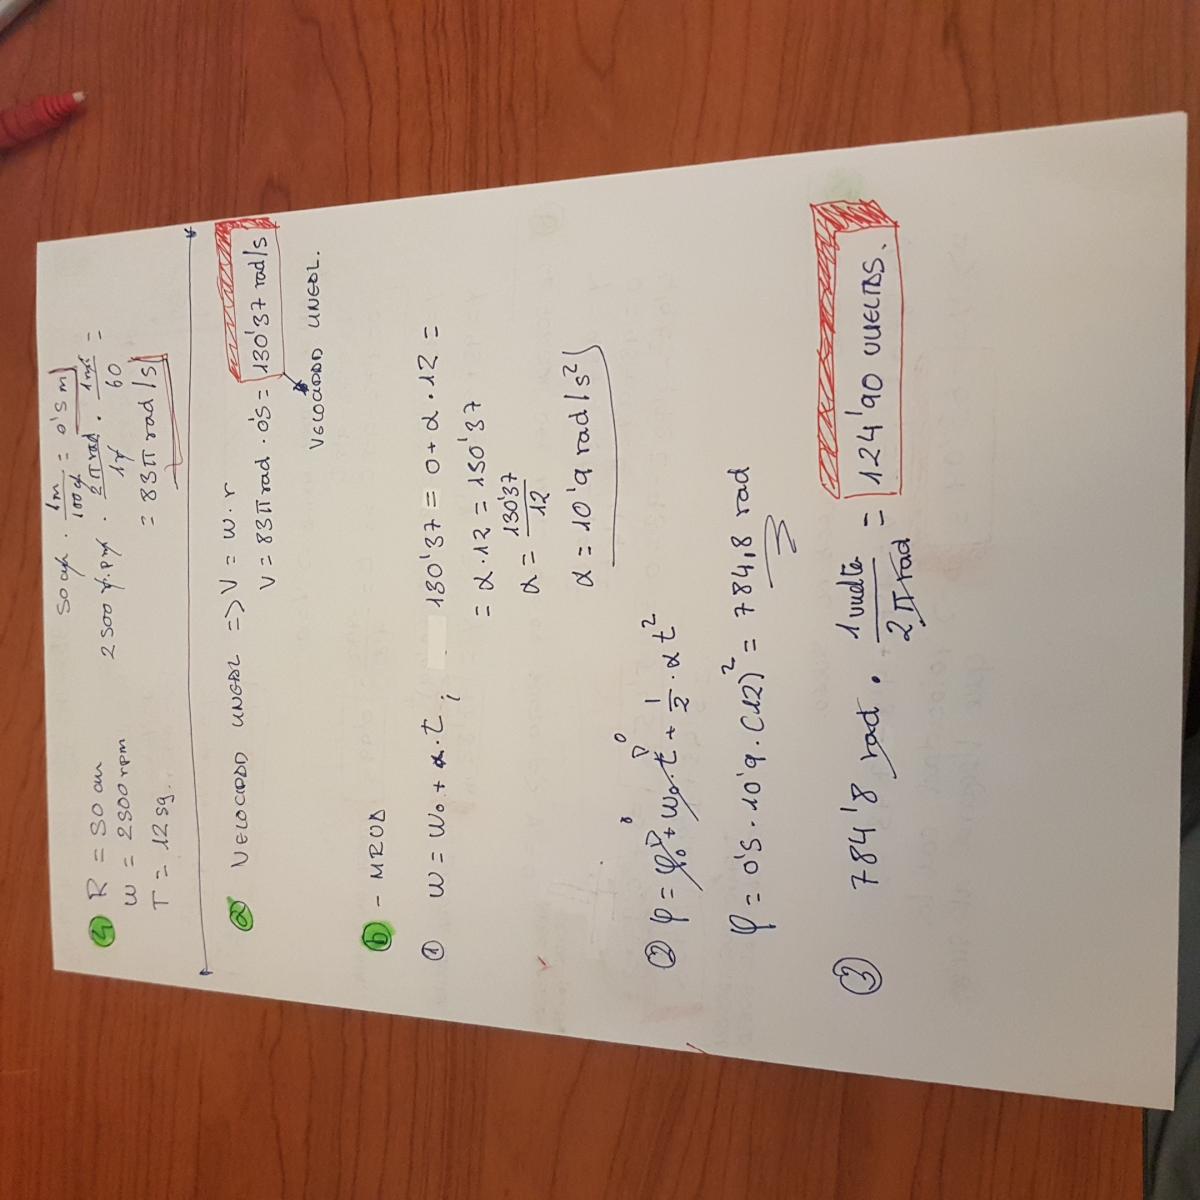 4) R = 50 cm
50 cm · 1m/100 cm = 0's m
w = 2500 rpm
2500 r.p.m · 2π rad/1r · 1m/60 =
T = 12 sg..
= 83π rad/s
a) VELOCIDAD LINEAL => V = w · r
V = 83π rad · 0's = 130'37 rad/s
VELOCIDAD LINEAL.
b) - MRUA
① w = w₀ + α · t ;
130'37 = 0 + α · 12 =
= α · 12 = 130'37
α = 130'37/12
α = 10'9 rad/s²
② φ = φ₀ + w₀ · t + 1/2 · α t²
0 0
φ = 0's · 10'9 · (12)² = 784,8 rad
③ 784'8 rad · 1 vuelta/2π rad = 124'90 VUELTAS.